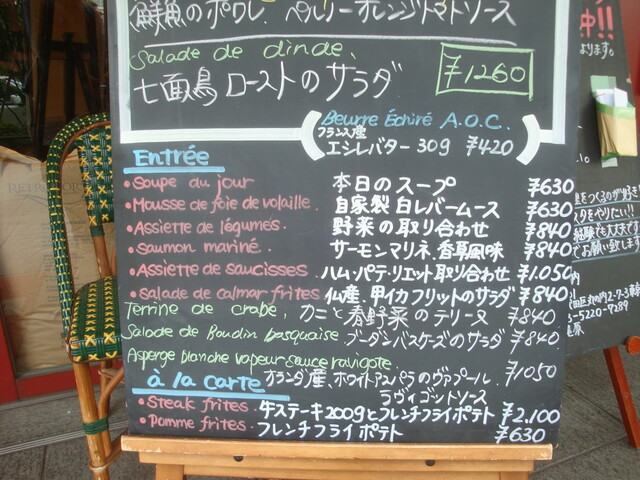 鮮魚のポワレ ペルノーオレンジトマトソース
Salade de dinde.
七面鳥ローストのサラダ ¥1260
Beurre Échiré A.O.C.
フランス産
エシレバター 30g ¥420
Entrée
・Soupe du jour 本日のスープ ¥630
・Mousse de foie de volaille. 自家製 白レバームース ¥630
・Assiette de légumes. 野菜の取り合わせ ¥840
・saumon mariné. サーモンマリネ、香草風味 ¥840
・Assiette de saucisses. ハム・パテ・リエット取り合わせ ¥1.050
・salade de calmar frites 仏産、甲イカフリットのサラダ ¥840
Terrine de crabe, カニと春野菜のテリーヌ ¥840
Salade de Boudin basquaise ブーダンバスケーズのサラダ ¥840
Asperge blanche vapeur sauce ravigote
オランダ産、ホワイトアスパラのヴァプール ¥1050
ラヴィゴットソース
à la carte
・Steak frites. 牛ステーキ200gとフレンチフライポテト ¥2.100
・Pomme frites. フレンチフライポテト ¥630
中!!
5220-9289